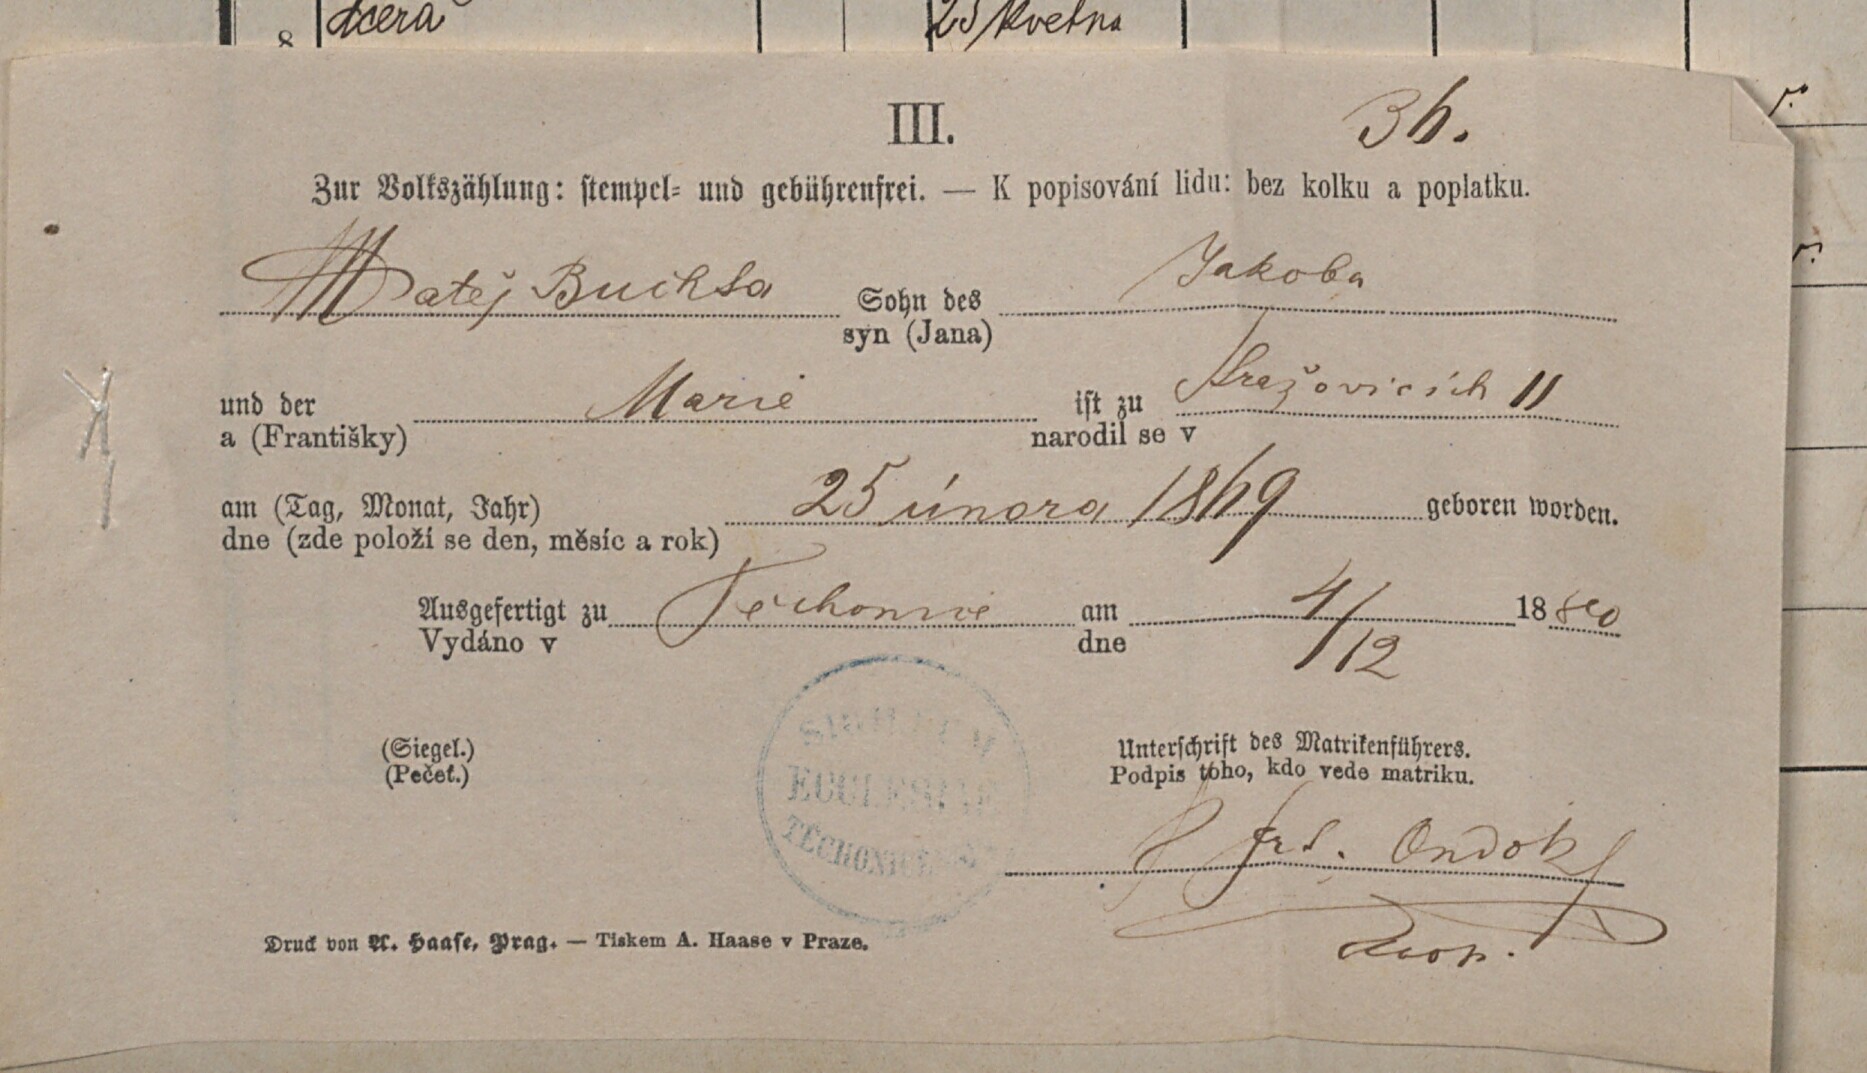 8 dcera 25 května
III. 36.
Zur Volkszählung: stempel- und gebührenfrei. — K popisování lidu: bez kolku a poplatku.
Matěj Buchsa Sohn des Jakoba
syn (Jana)
und der Marie ist zu Kražovicích 11
a (Františky) narodil se v
am (Tag, Monat, Jahr) 25 února 1869 geboren worden.
dne (zde položí se den, měsíc a rok)
Ausgefertigt zu Těchonice am 4/12 1880
Vydáno v dne
SIGILLUM
ECCLESIAE
TĚCHONIC
(Siegel.) Unterschrift des Matrikenführers.
(Pečeť.) Podpis toho, kdo vede matriku.
Ondok
Druck von A. Haase, Prag. — Tiskem A. Haase v Praze.